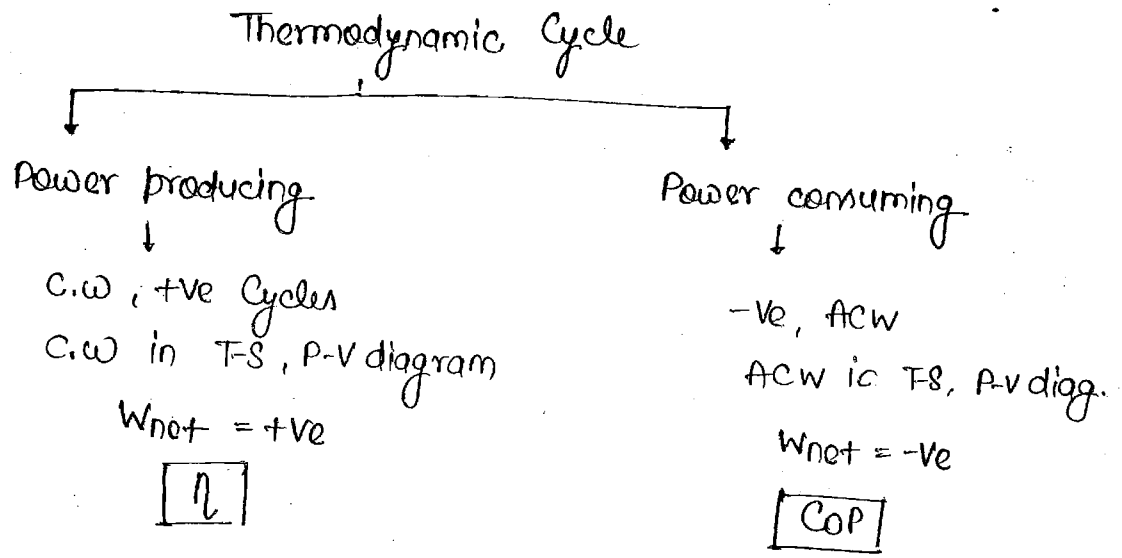 Thermodynamic Cycle
Power producing
C.W, +ve Cycles
C.W in T-S, P-V diagram
Wnet = +ve
η
Power consuming
-Ve, ACW
ACW in T-S, P-V diag.
Wnet = -Ve
COP